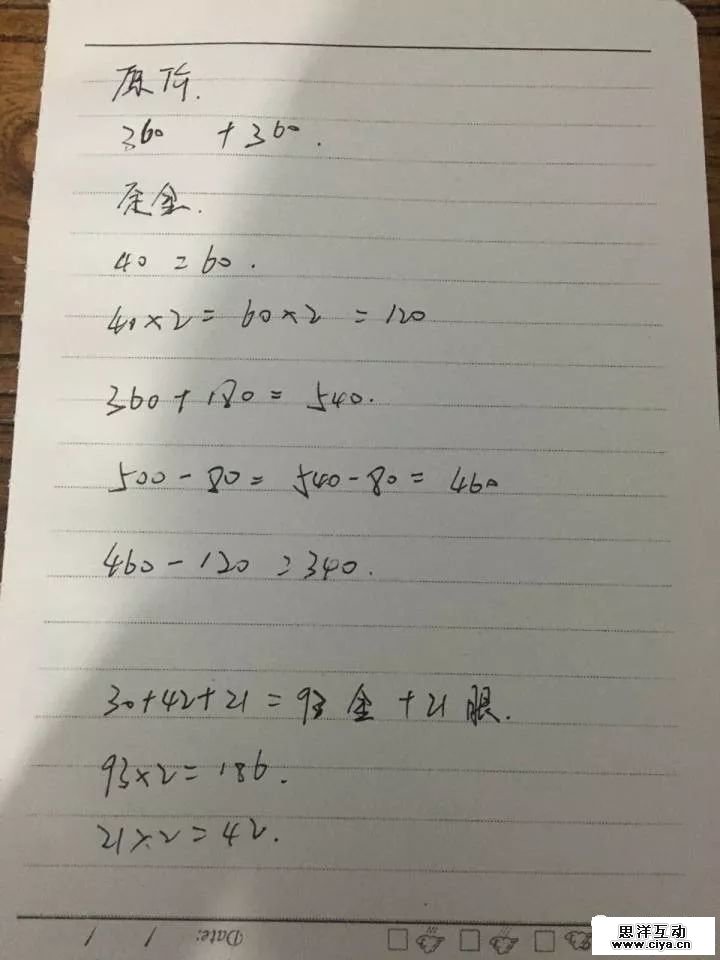 原价.
360 +360.
定金.
40 =60.
40×2= 60×2 =120
360+180= 540.
500-80= 540-80= 460
460-120 =340.
30+42+21=93 金 +21 眼.
93×2=186.
21×2=42.
Date: / /
思洋互动
www.ciya.cn